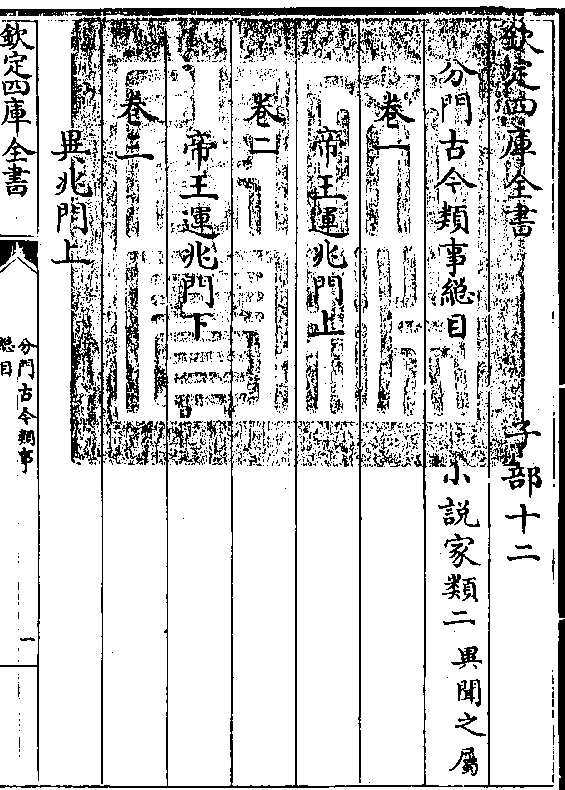 欽定四庫全書　子部十二
分門古今類事総目　小說家類二　異聞之屬
卷一
帝王運兆門上
卷二
帝王運兆門下
卷三
異兆門上
欽定四庫全書
分門古今類事
総目
一